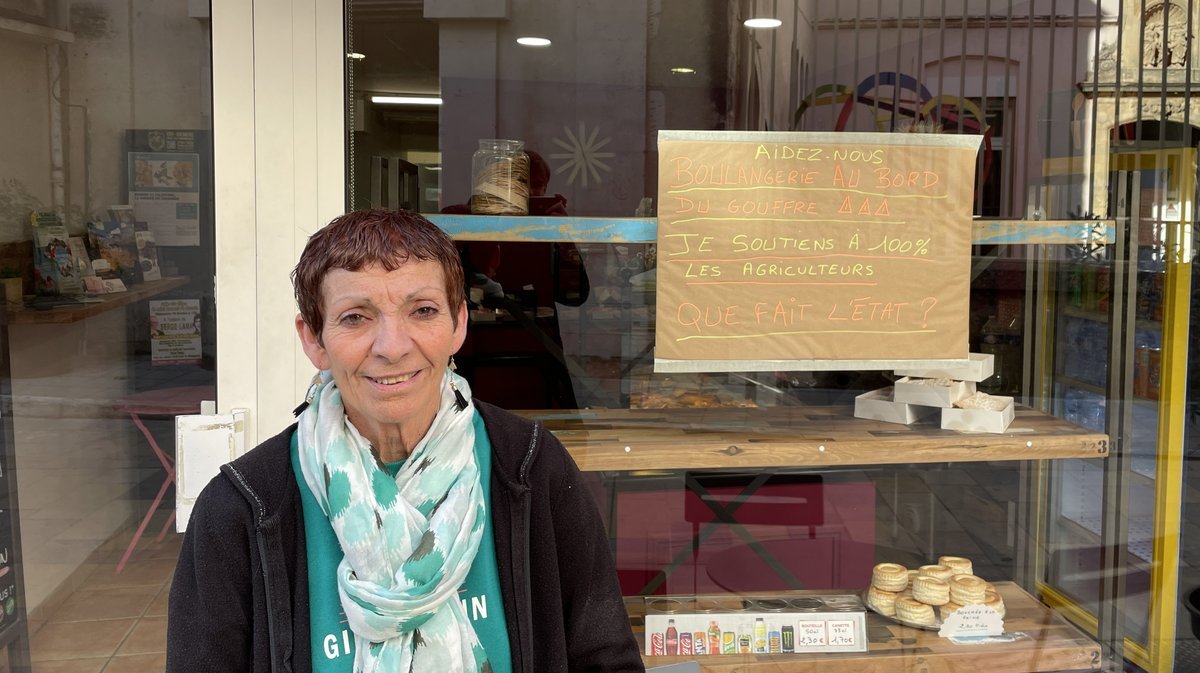 AIDEZ-NOUS
BOULANGERIE AU BORD
DU GOUFFRE
JE SOUTIENS À 100%
LES AGRICULTEURS
QUE FAIT L'ÉTAT ?
SERGE LAMA
BOUTEILLE
50cl
2,30€
CANETTE
33cl
1,70€
GI
IN
223
2